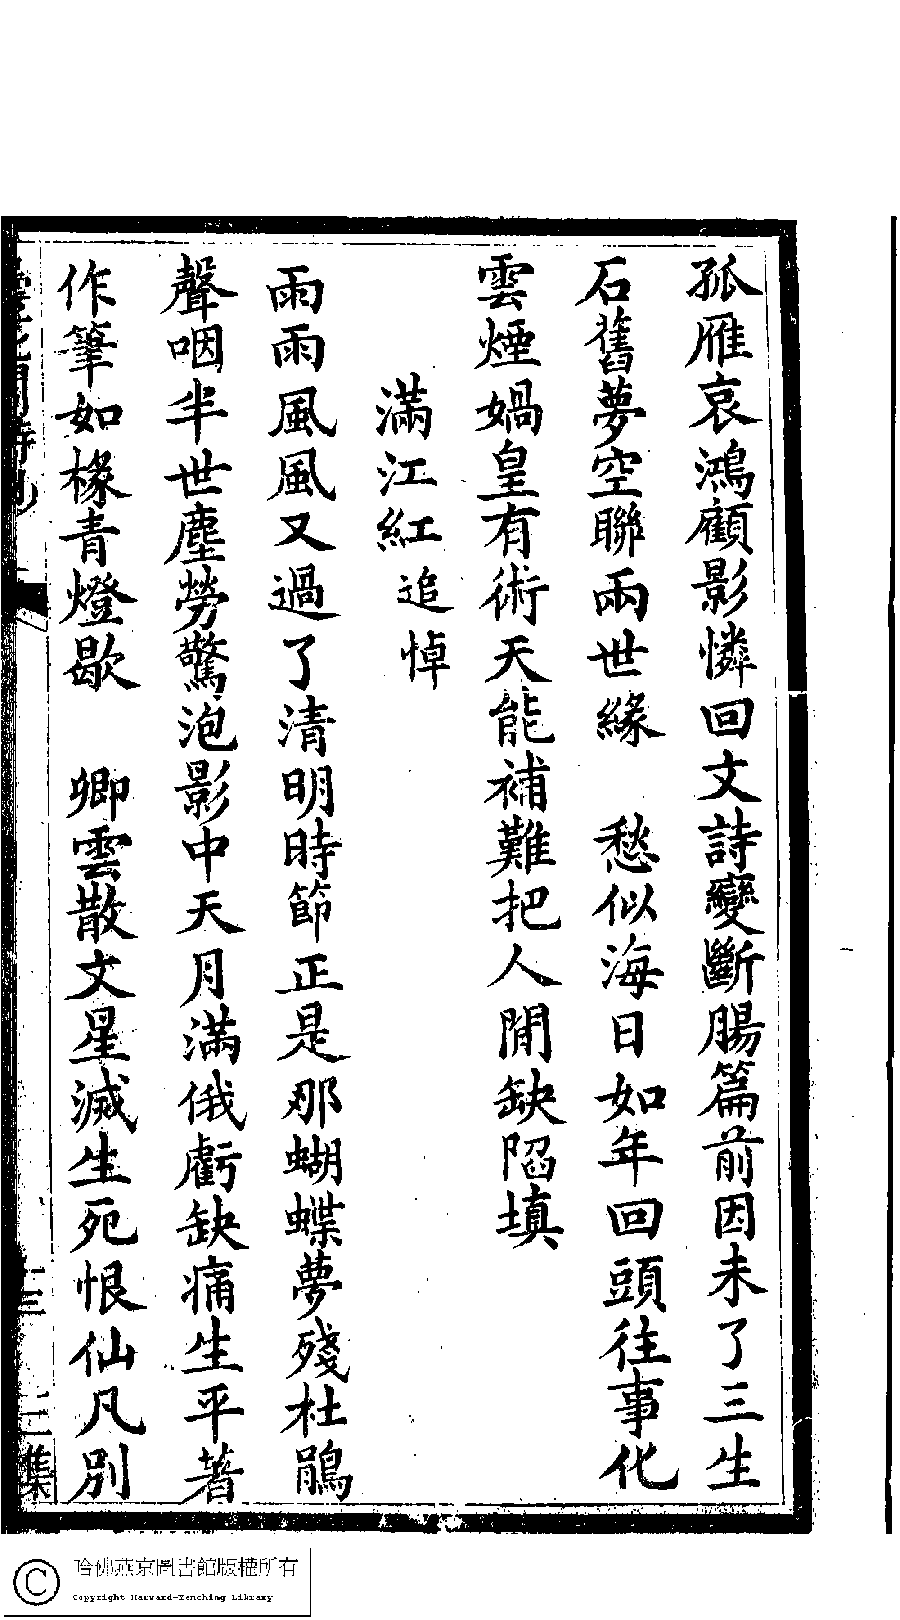 孤雁哀鴻顧影憐回文詩變斷腸篇前因未了三生
石舊夢空聯兩世緣　愁似海日如年回頭往事化
雲煙媧皇有術天能補難把人間缺陷填
滿江紅追悼
雨雨風風又過了清明時節正是那蝴蝶夢殘杜鵑
聲咽半世塵勞驚泡影中天月滿俄虧缺痛生平著
作筆如椽青燈歇　卿雲散文星滅生死恨仙凡別
十三　二集
哈佛燕京圖書館版權所有
Copyright Harvard-Yenching Library